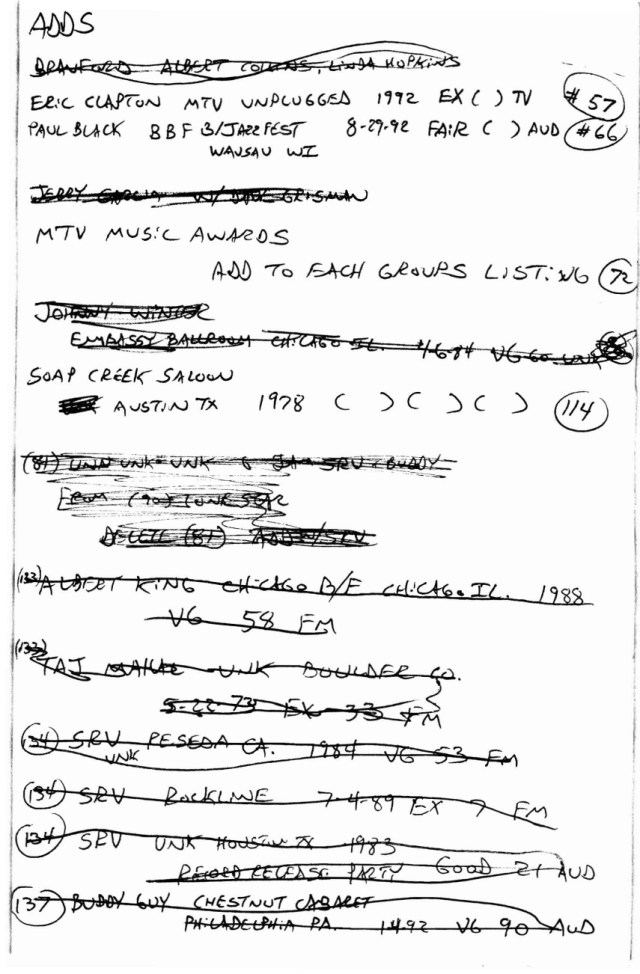 ADDS
BRANFORD ALBERT COLLINS, LINDA HOPKINS
ERIC CLAPTON MTV UNPLUGGED 1992 EX ( ) TV #57
PAUL BLACK BBF B/JAZZFEST 8-29-92 FAIR ( ) AUD #66
WAUSAU WI
JERRY GARCIA W/ DAVE GRISMAN
MTV MUSIC AWARDS
ADD TO EACH GROUPS LISTING 72
JOHNNY WINTER
EMBASSY BALLROOM CHICAGO IL. 6-84 VG 60
SOAP CREEK SALOON
AUSTIN TX 1978 ( ) ( ) ( ) 114
(81) UNK UNK SRV BUDDY
FROM (90)
DELETE (81)
(133) ALBERT KING CHICAGO B/F CHICAGO IL. 1988
VG 58 FM
(133) TAJ MAHAL UNK BOULDER CO.
5-22-73 EX 33 FM
134 SRV PESEDA CA. 1984 VG 53 FM
UNK
134 SRV ROCKLINE 7-4-89 EX 7 FM
134 SRV UNK HOUSTON TX 1983
RECORD RELEASE PARTY GOOD 21 AUD
137 BUDDY GUY CHESTNUT CABARET
PHILADELPHIA PA. 1-4-92 VG 90 AUD